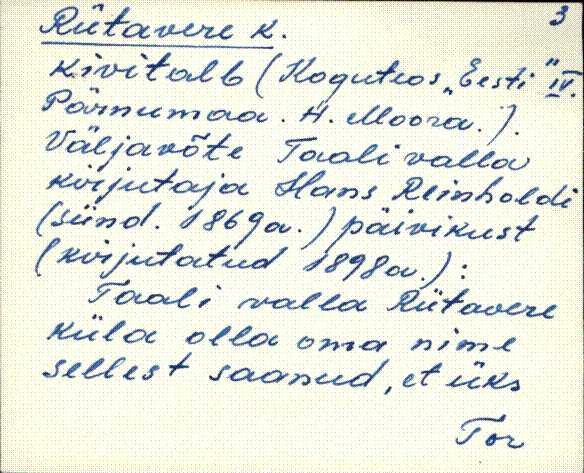 3
Rütavere k.
Kivitalb (Koguteos „Eesti" IV.
Pärnumaa. H. Moora.).
Väljavõte Taali valla
kirjutaja Hans Reinholdi
(sünd. 1869a.) päivikust
(kirjutatud 1898a.):
Taali valla Rütavere
küla olla oma nime
sellest saanud, et üks
Tor